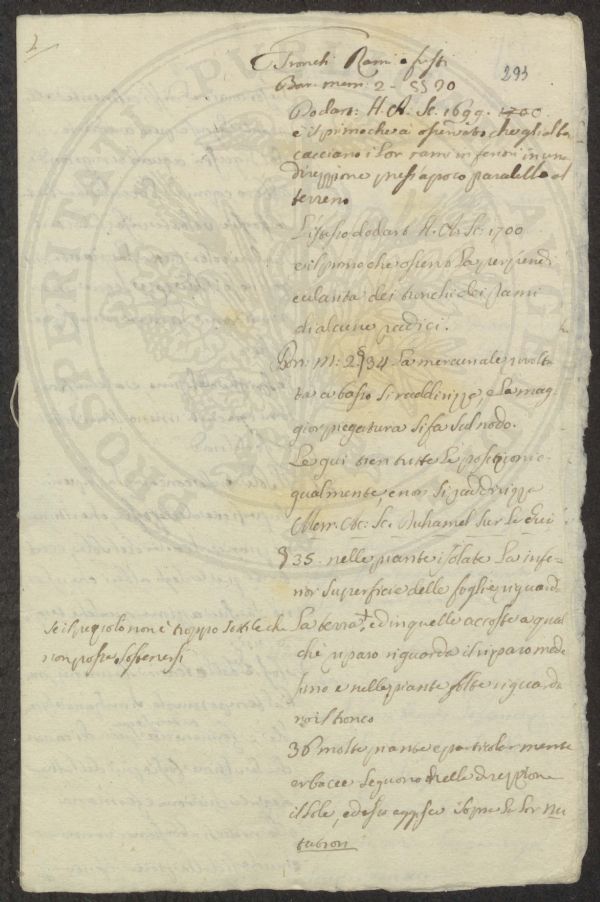 2
293
Tronchi Rami e fusti
Bon: mem: 2 - §§ 20
Dodart: H. A. Sc: 1699. 1700
e il primo che à osservato che gli alb.
cacciano i lor rami inferiori in una
direzzione pressi a poco paralella al
terreno
L'istesso dodart H. A. Sc: 1700
e il primo che osservò la perpendi
cularita dei tronchi dei rami
di alcune radici.
Bon: m: 2 § 34. La mercuriale rivolta
ta a basso si raddirizza, e la mag
gior piegatura si fa sul nodo.
Le gui tien tutte le posizioni e
gualmente, e non si raddirizza
Mem: Ac: Sc. Duhamel sur le Gui
§ 35. nelle piante isolate la infe
rior superficie delle foglie riguard
la terra +, ed in quelle accoste a qual
che riparo riguarda il riparo mede
simo e nelle piante folte riguarda
no il tronco
se il peziolo non è troppo sottile che
non possa sostenersi
36 molte piante e particolarmente
erbacee seguono nella direzzione
il sole, ed esso appisca la lor nu
tation
PROSPERITAS PUBLICA AUGETUR